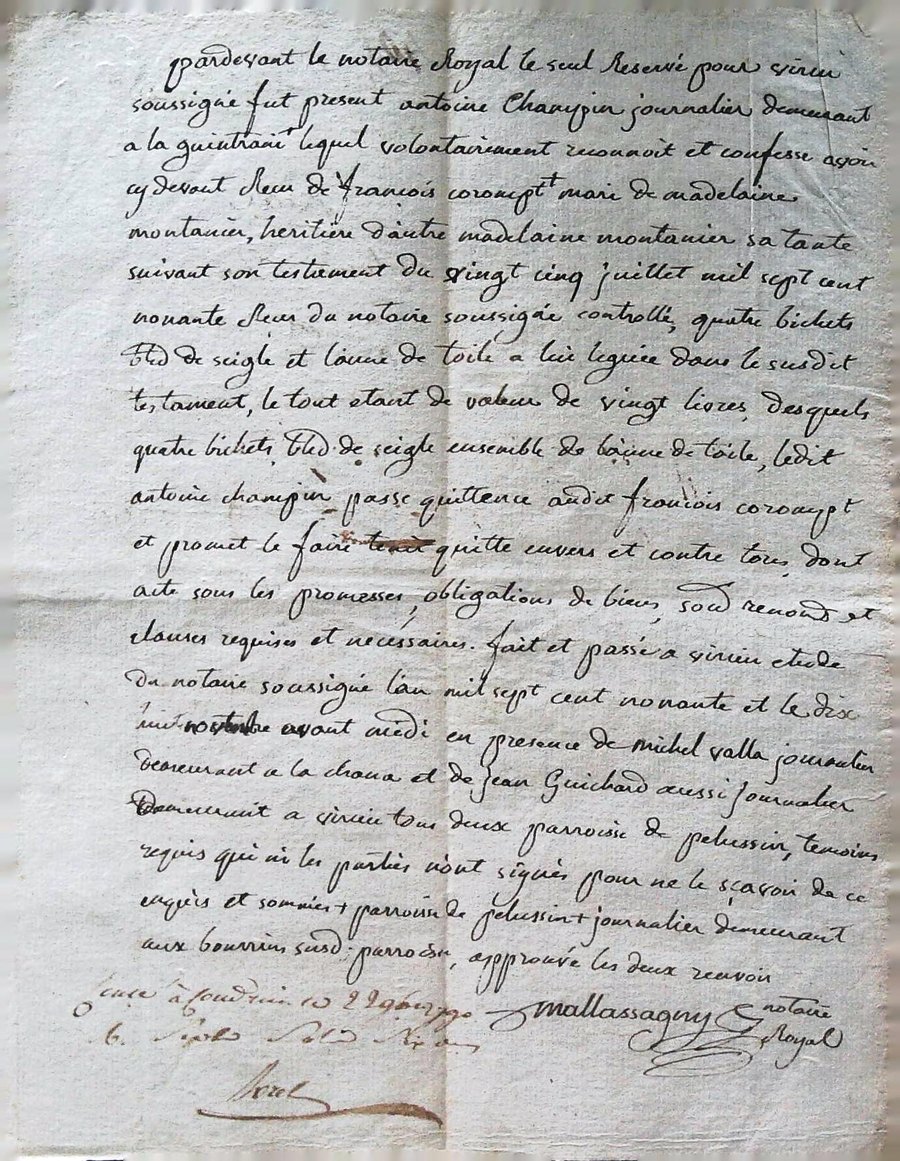 pardevant le notaire Royal le seul Reservé pour virieu
soussigné fut present antoine Champin journalier demeurant
a la guintrani+ lequel volontairement reconnoit et confesse avoir
cy devant Receu de françois corompt+ mari de madelaine
montanier, heritière d'autre madelaine montanier sa tante
suivant son testament du vingt cinq juillet mil sept cent
nonante Receu du notaire soussigné controllé, quatre bichets
bled de seigle et l'aune de toile a lui leguée dans le susdit
testament, le tout etant de valeur de vingt livres, desquels
quatre bichets bled de seigle ensemble de l'aune de toile, ledit
antoine champin passe quittence audit françois corompt
et promet le faire quitte envers et contre tous, dont
acte sous les promesses, obligations de biens, soud renond et
clauses requises et necessaires. fait et passé a virieu etude
du notaire soussigné l'an mil sept cent nonante et le dix
huit novembre avant midi en presence de michel valla journalier
demeurant a la chana et de jean Guichard aussi journalier
Demeurant a virieu tous deux parroisse de pelussin, temoins
requis qui ni les parties n'ont signés pour ne le sçavoir de ce
enquis et sommés + parroisse de pelussin + journalier demeurant
aux bourrins susd. parroisse, approuvé les deux renvoir
mallassagny notaire
Royal
a Condrieu ce 22 9bre 1790
Borel